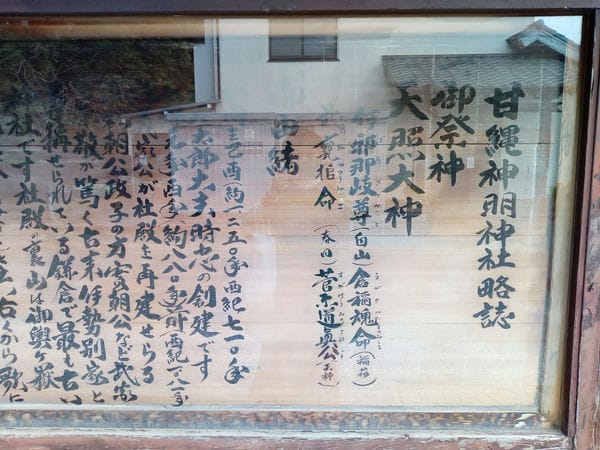 甘縄神明神社略誌
御祭神
天照大神
伊邪那岐尊(白山)倉稲魂命(稲荷)
槌命(春日)菅原道真公(天神)
由緒
己酉(約一二五〇年西紀七一〇年
太郎大夫時忠の創建です
年(約八八〇年前西紀一〇八一年
公が社殿を再建せらる
朝公政子の方実朝公など武家
敬が篤く古来伊勢別家と
称せられている鎌倉で最も古い
社です社殿の裏山は御輿ヶ嶽
古くから歌に